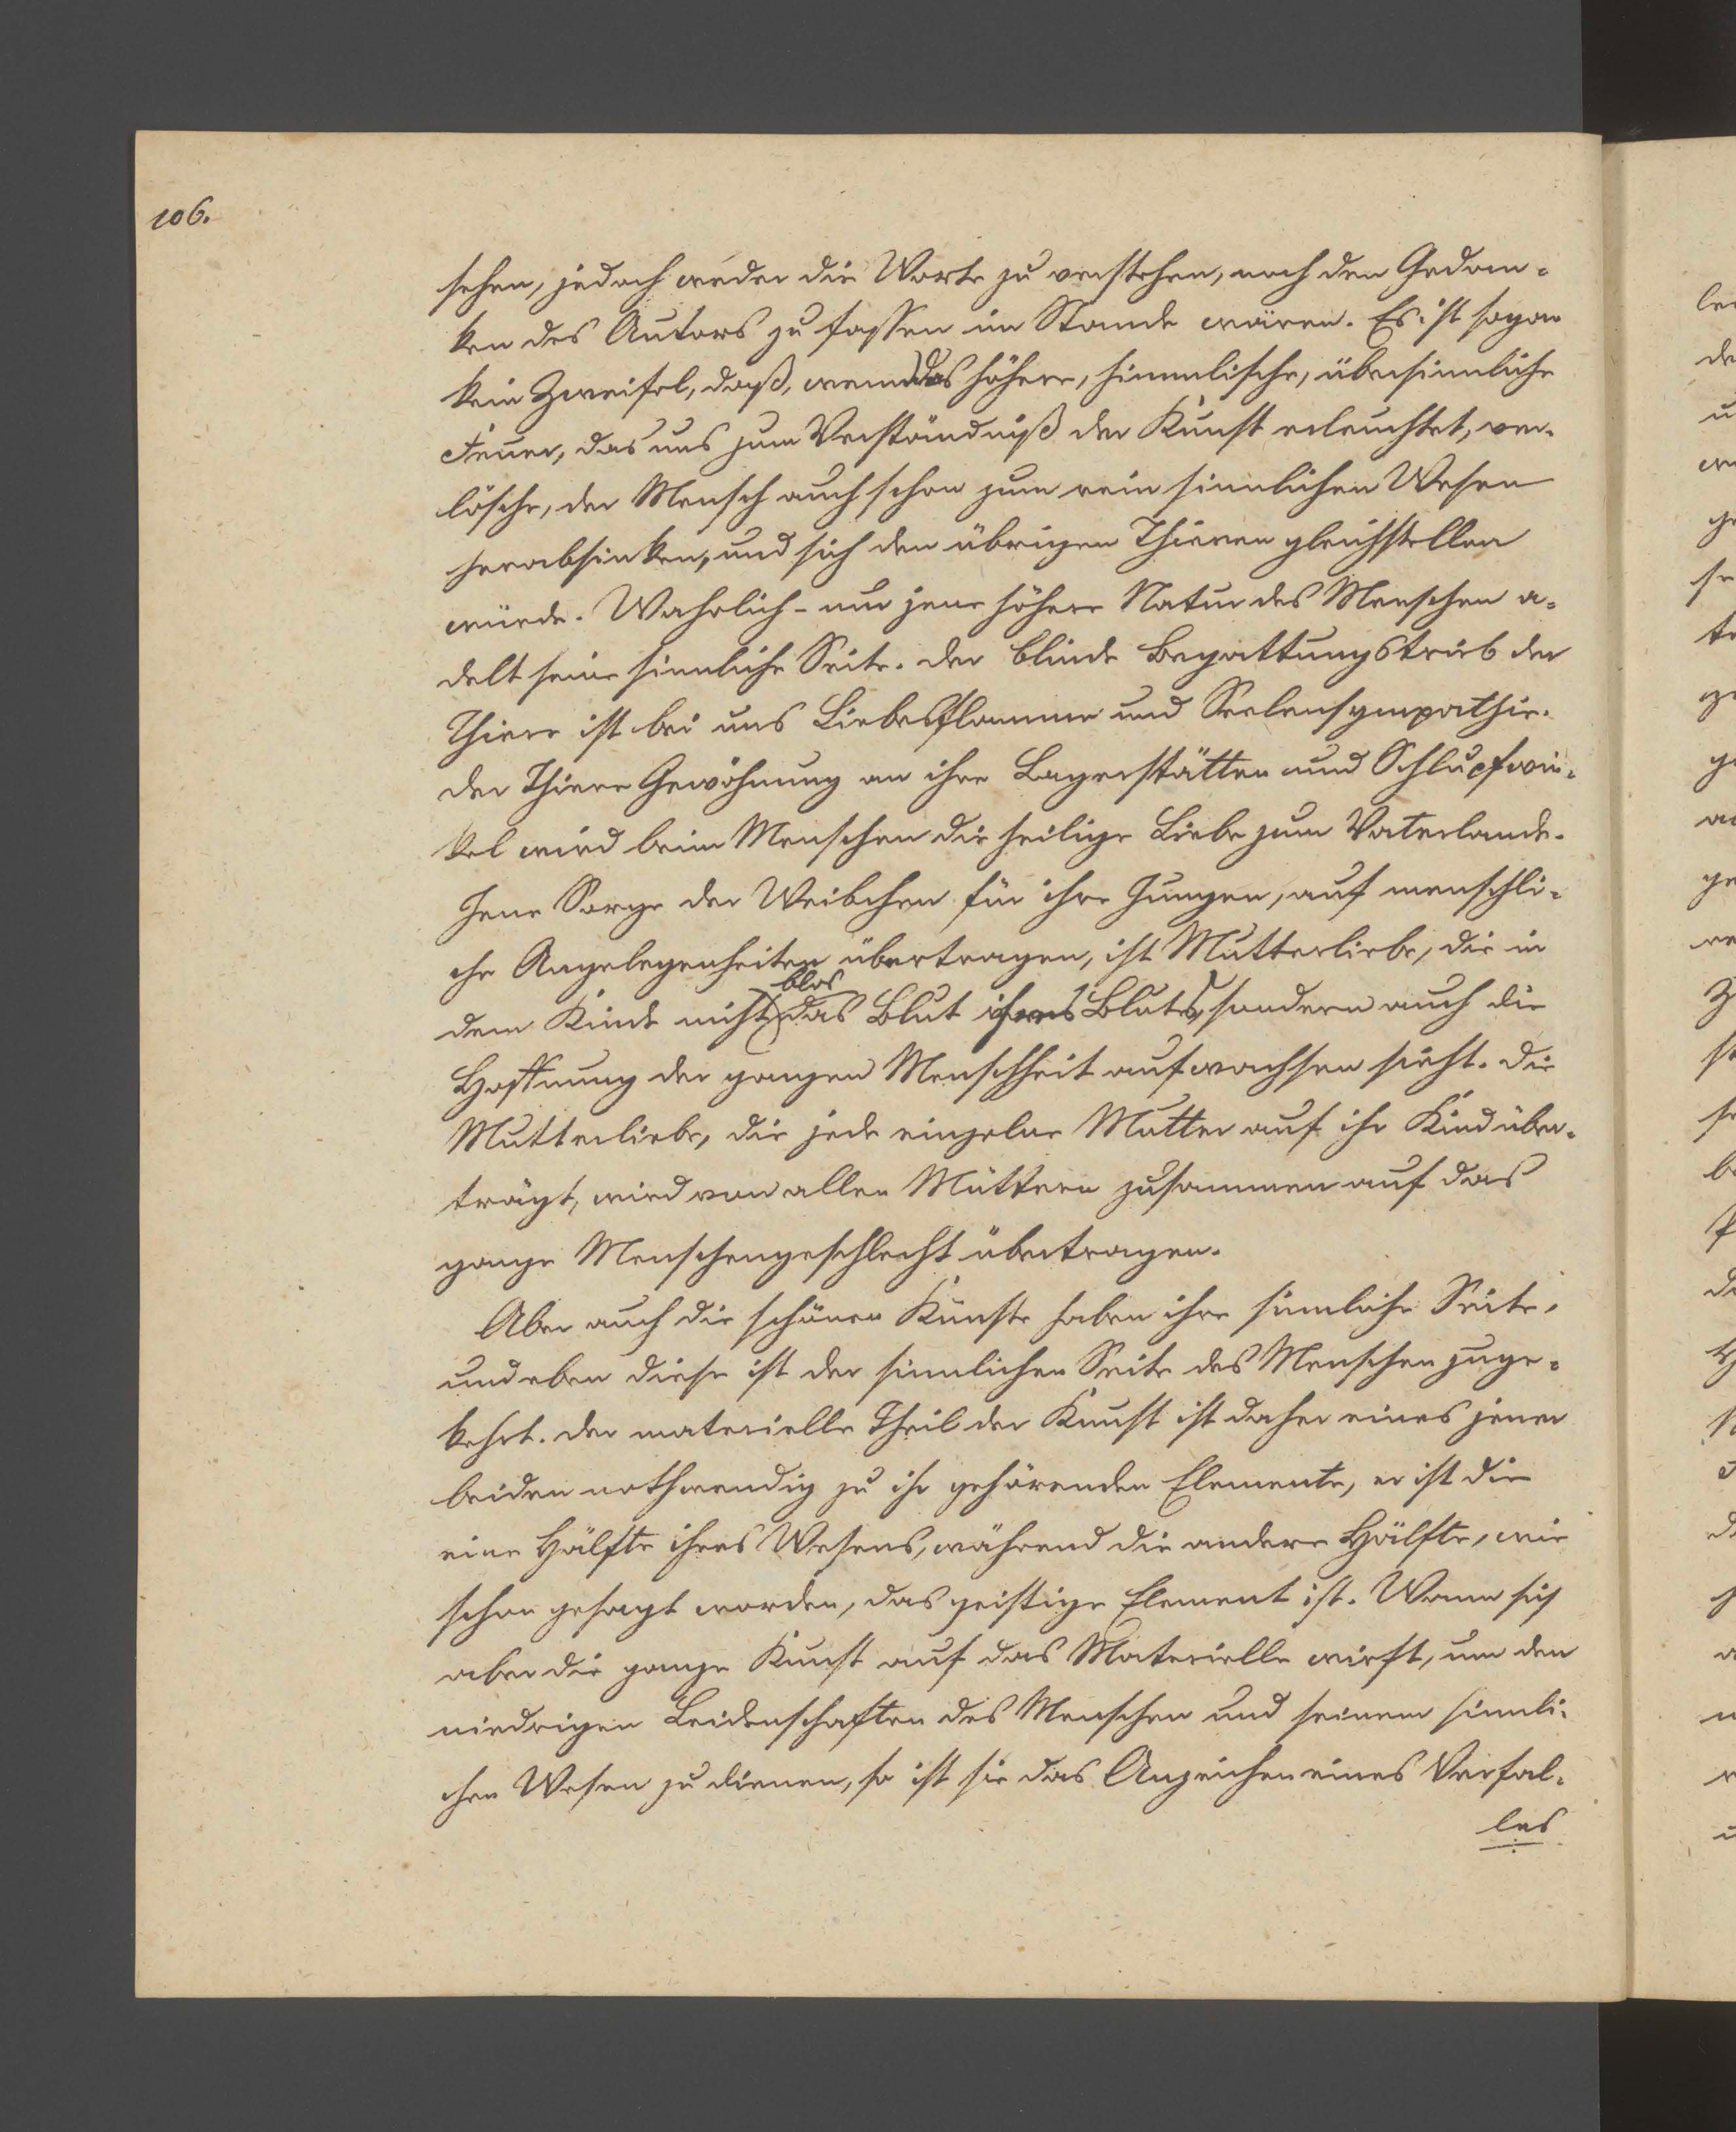 106.
sehen, jedoch weder die Worte zu verstehen, noch den Gedan-
ken des Autors zu fassen im Stande wären. Es ist sogar
kein Zweifel, daß, wenn das höhere, himmlische, übersinnliche
Feuer, das uns zum Verständniß der Kunst erleuchtet, ver-
lösche, der Mensch auch schon zum rein sinnlichen Wesen
herabsinken, und sich den übrigen Thieren gleichstellen
würde. Wahrlich - nur jene höhere Natur des Menschen a-
delt seine sinnliche Seite. Der blinde Begattungstrieb der
Thiere ist bei uns Liebesflamme und Seelensympathie.
Der Thiere Gewöhnung an ihre Lagerstätten und Schlupfwin-
kel wird beim Menschen die heilige Liebe zum Vaterlande.
Jene Sorge der Weibchen für ihre Jungen, auf menschli-
che Angelegenheiten übertragen, ist Mutterliebe, die in
blos
dem Kinde nicht das Blut ihres Blutes, sondern auch die
Hoffnung der ganzen Menschheit aufwachsen sieht. Die
Mutterliebe, die jede einzelne Mutter auf ihr Kind über-
trägt, wird von allen Müttern zusammen auf das
ganze Menschengeschlecht übertragen.
Aber auch die schönen Künste haben ihre sinnliche Seite,
und eben diese ist der sinnlichen Seite des Menschen zuge-
kehrt. Der materielle Theil der Kunst ist daher eines jener
beiden nothwendig zu ihr gehörenden Elemente, er ist die
eine Hälfte ihres Wesens, während die andere Hälfte, wie
schon gesagt worden, das geistige Element ist. Wenn sich
aber die ganze Kunst auf das Materielle wirft, um den
niedrigen Leidenschaften des Menschen und seinem sinnli-
chen Wesen zu dienen, so ist sie das Anzeichen eines Verfal-
les